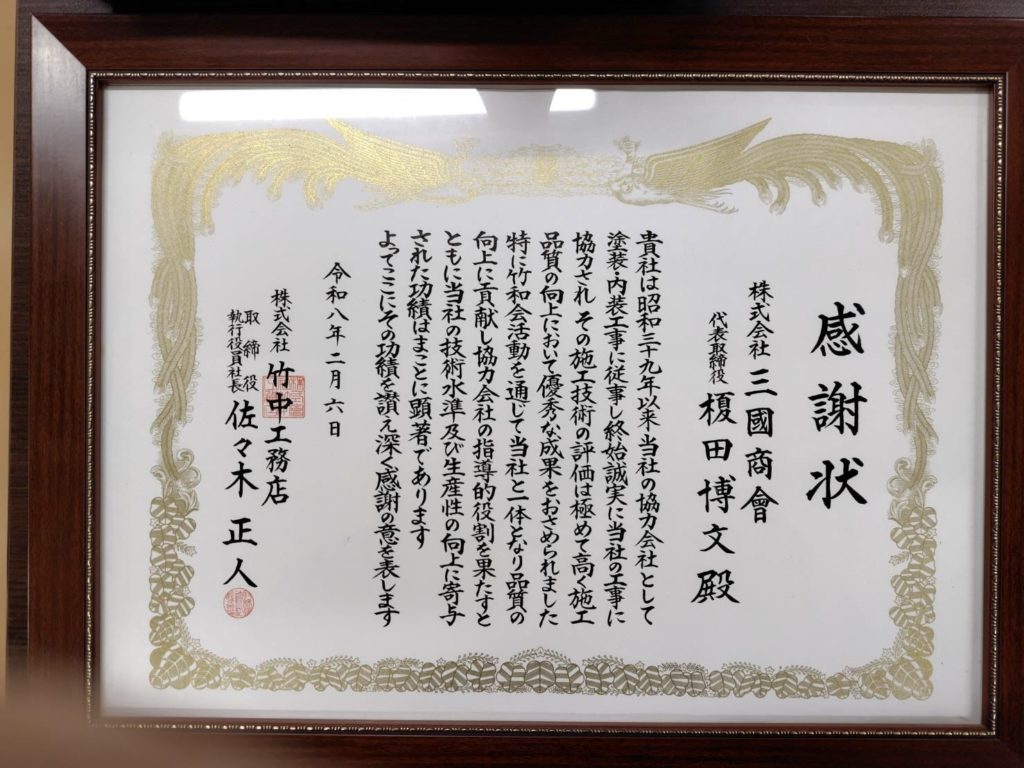 感謝状
株式会社 三國商會
代表取締役 榎田博文殿
貴社は昭和三十九年以来当社の協力会社として
塗装・内装工事に従事し終始誠実に当社の工事に
協力され その施工技術の評価は極めて高く施工
品質の向上において優秀な成果をおさめられました
特に竹和会活動を通じて当社と一体となり品質の
向上に貢献し協力会社の指導的役割を果たすと
ともに当社の技術水準及び生産性の向上に寄与
された功績はまことに顕著であります
よってここにその功績を讃え深く感謝の意を表します
令和八年二月六日
株式会社 竹中工務店
取締役
執行役員社長 佐々木正人